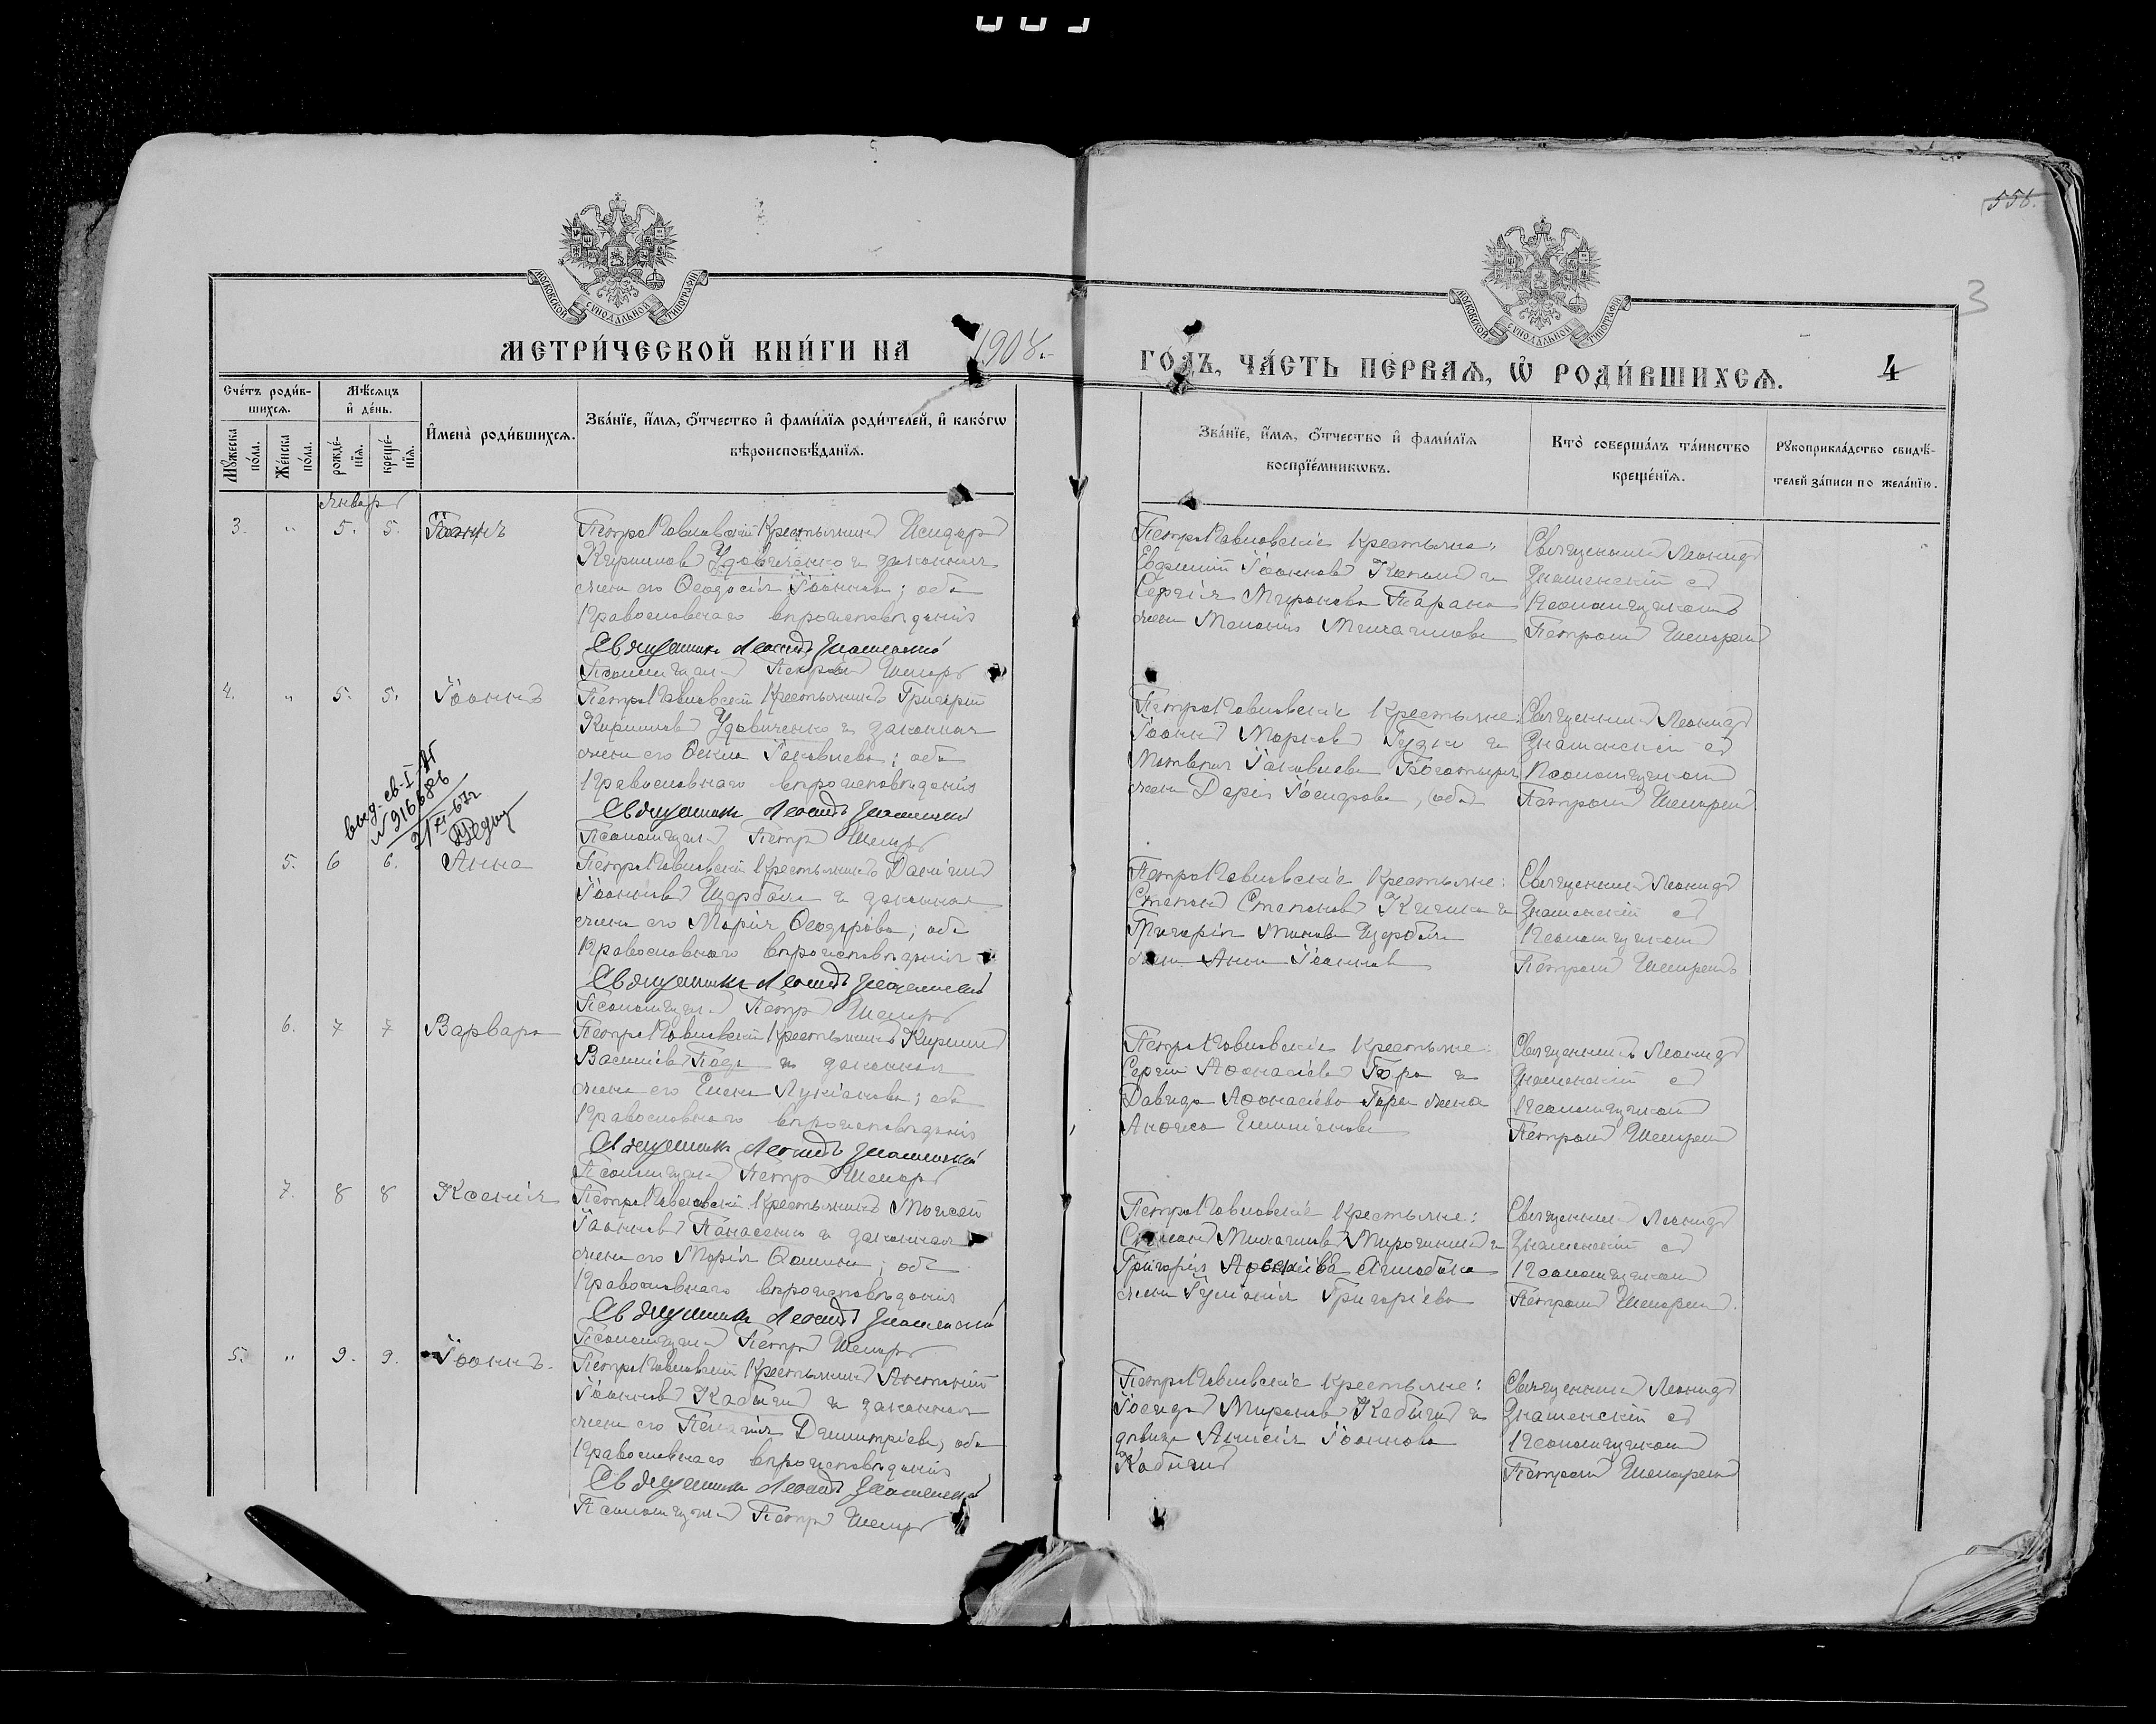 556.
3
МОСКОВСКОЙ СУНОДАЛЬНОЙ ТИПОГРАФІИ
МОСКОВСКОЙ СУНОДАЛЬНОЙ ТИПОГРАФІИ
МЕТРИ́ЧЕСКОЙ КНИ́ГИ НА 1908.
ГО́ДЪ, ЧА́СТЬ ПЕ́РВАѦ, Ѡ҆ РОДИ́ВШИХСѦ. 4
Сче́тъ роди́в-
шихсѧ.
Мꙋ́жеска
по́ла.
Же́нска
по́ла.
Мѣ́сѧцъ
и҆ де́нь.
рожде́-
нїѧ.
креще́-
нїѧ.
И҆мена̀ роди́вшихсѧ.
Зва́нїе, и҆́мѧ, ѻ҆́тчество и҆ фами́лїѧ роди́телей, и҆ како́гѡ
вѣроисповѣ́данїѧ.
Зва́нїе, и҆́мѧ, ѻ҆́тчество и҆ фами́лїѧ
воспрїе́мникѡвъ.
Кто̀ соверша́лъ та́инство
креще́нїѧ.
Рꙋкоприкла́дство свидѣ́-
телей за́писи по жела́нїю.
Январь
3. " 5. 5. Іоаннъ
ПетроПавловскій Крестьянинъ Исидоръ
Кирилловъ Удовиченко и законная
жена его Ѳеодосія Іоаннова; оба
Православнаго вѣроисповѣданія
Священникъ Леонидъ Знаменскій
Псаломщикъ Петръ
ПетроПавловскіе крестьяне:
Евфимій Іоанновъ и
Сергія Миронова Тарана
жена Меланія Михаилова
Священникъ Леонидъ
Знаменскій съ
Псаломщикомъ
Петромъ
4. " 5. 5. Іоаннъ
ПетроПавловскій Крестьянинъ Григорій
Кирилловъ Удовиченко и законная
жена его Ѳекла Іаковлева; оба
Православнаго вѣроисповѣданія
Священникъ Леонидъ Знаменскій
Псаломщикъ Петръ
ПетроПавловскіе Крестьяне:
Іоаннъ Марковъ Гудзь и
Матвѣя Іаковлева Богатыря
жена Дарія Іосифова, оба
Священникъ Леонидъ
Знаменскій съ
Псаломщикомъ
Петромъ
выд. св-I-АГ
№ 916686
21/XI-67г
5. 6 6. Анна
ПетроПавловскій Крестьянинъ Даніилъ
Іоанновъ Щербань и законная
жена его Марія Ѳеодорова; оба
Православнаго вѣроисповѣданія
Священникъ Леонидъ Знаменскій
Псаломщикъ Петръ
ПетроПавловскіе Крестьяне:
Степанъ Степановъ и
Григорія Щербаня
жена Анна Іоаннова
Священникъ Леонидъ
Знаменскій съ
Псаломщикомъ
Петромъ
6. 7 7 Варвара
ПетроПавловскій Крестьянинъ Кириллъ
Василіевъ и законная
жена его Елена Лукіанова; оба
Православнаго вѣроисповѣданія
Священникъ Леонидъ Знаменскій
Псаломщикъ Петръ
ПетроПавловскіе Крестьяне:
Сергій Аѳанасіевъ Гора и
Давида Аѳанасіева Горы жена
Анфиса
Священникъ Леонидъ
Знаменскій съ
Псаломщикомъ
Петромъ
7. 8 8 Ксенія
ПетроПавловскій Крестьянинъ Моисей
Іоанновъ Панасенко и законная
жена его Марія Ѳомина; оба
Православнаго вѣроисповѣданія
Священникъ Леонидъ Знаменскій
Псаломщикъ Петръ
ПетроПавловскіе Крестьяне:
Михаиловъ и
Григорія
жена Іуліанія Григоріева
Священникъ Леонидъ
Знаменскій съ
Псаломщикомъ
Петромъ
5. " 9. 9. Іоаннъ.
ПетроПавловскій Крестьянинъ Антоній
Іоанновъ и законная
жена его Пелагія Димитріева; оба
Православнаго вѣроисповѣданія
Священникъ Леонидъ Знаменскій
Псаломщикъ Петръ
ПетроПавловскіе Крестьяне:
Іосифъ Мироновъ и
дѣвица Анисія Іоаннова
Священникъ Леонидъ
Знаменскій съ
Псаломщикомъ
Петромъ